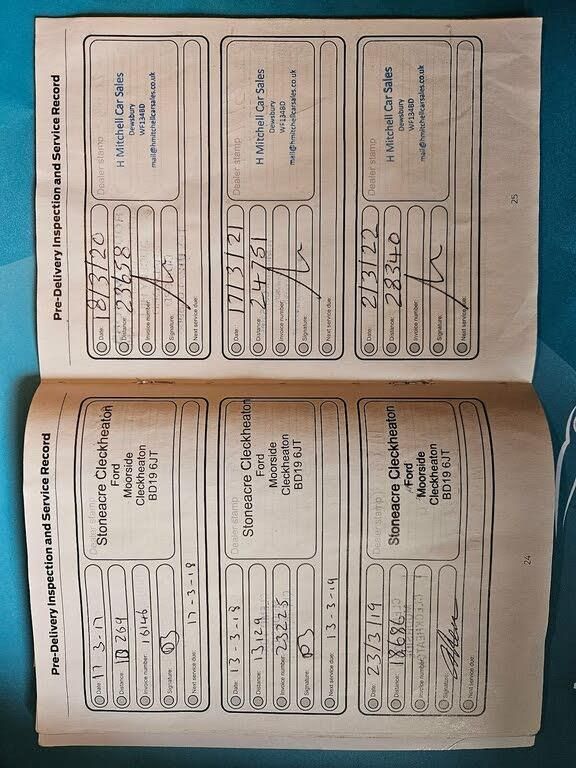 Pre-Delivery Inspection and Service Record
Date: 17 3-17
Distance: 10 269
Invoice number: 16146
Signature:
Next service due: 17-3-18
Dealer stamp
Stoneacre Cleckheaton
Ford
Moorside
Cleckheaton
BD19 6JT
Date: 13-3-18
Distance: 13,129
Invoice number: 23225
Signature:
Next service due: 13-3-19
Dealer stamp
Stoneacre Cleckheaton
Ford
Moorside
Cleckheaton
BD19 6JT
Date: 23/3/19
Distance: 18686
Invoice number:
Signature:
Next service due:
Dealer stamp
Stoneacre Cleckheaton
Ford
Moorside
Cleckheaton
BD19 6JT
24
Pre-Delivery Inspection and Service Record
Date: 18/3/20
Distance: 23658
Invoice number:
Signature:
Next service due:
Dealer stamp
H Mitchell Car Sales
Dewsbury
WF134BD
mail@hmitchellcarsales.co.uk
Date: 17/3/21
Distance: 24751
Invoice number:
Signature:
Next service due:
Dealer stamp
H Mitchell Car Sales
Dewsbury
WF134BD
mail@hmitchellcarsales.co.uk
Date: 2/3/22
Distance: 28340
Invoice number:
Signature:
Next service due:
Dealer stamp
H Mitchell Car Sales
Dewsbury
WF134BD
mail@hmitchellcarsales.co.uk
25